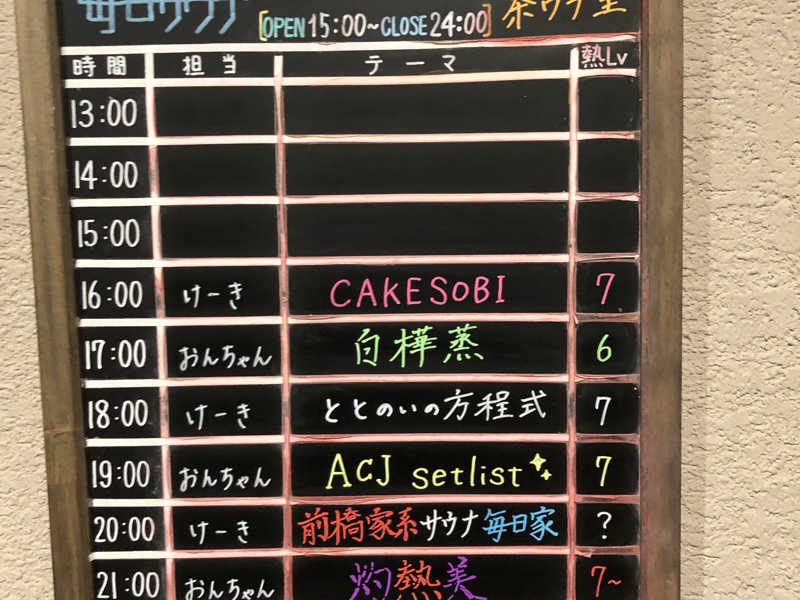 毎日サウナ
[OPEN 15:00~CLOSE 24:00] 茶ウナ室
時間 担当 テーマ 熱Lv
13:00
14:00
15:00
16:00 けーき CAKESOBI 7
17:00 おんちゃん 白樺蒸 6
18:00 けーき ととのいの方程式 7
19:00 おんちゃん ACJ setlist 7
20:00 けーき 前橋家系サウナ毎日家 ?
21:00 おんちゃん 灼熱美 7~